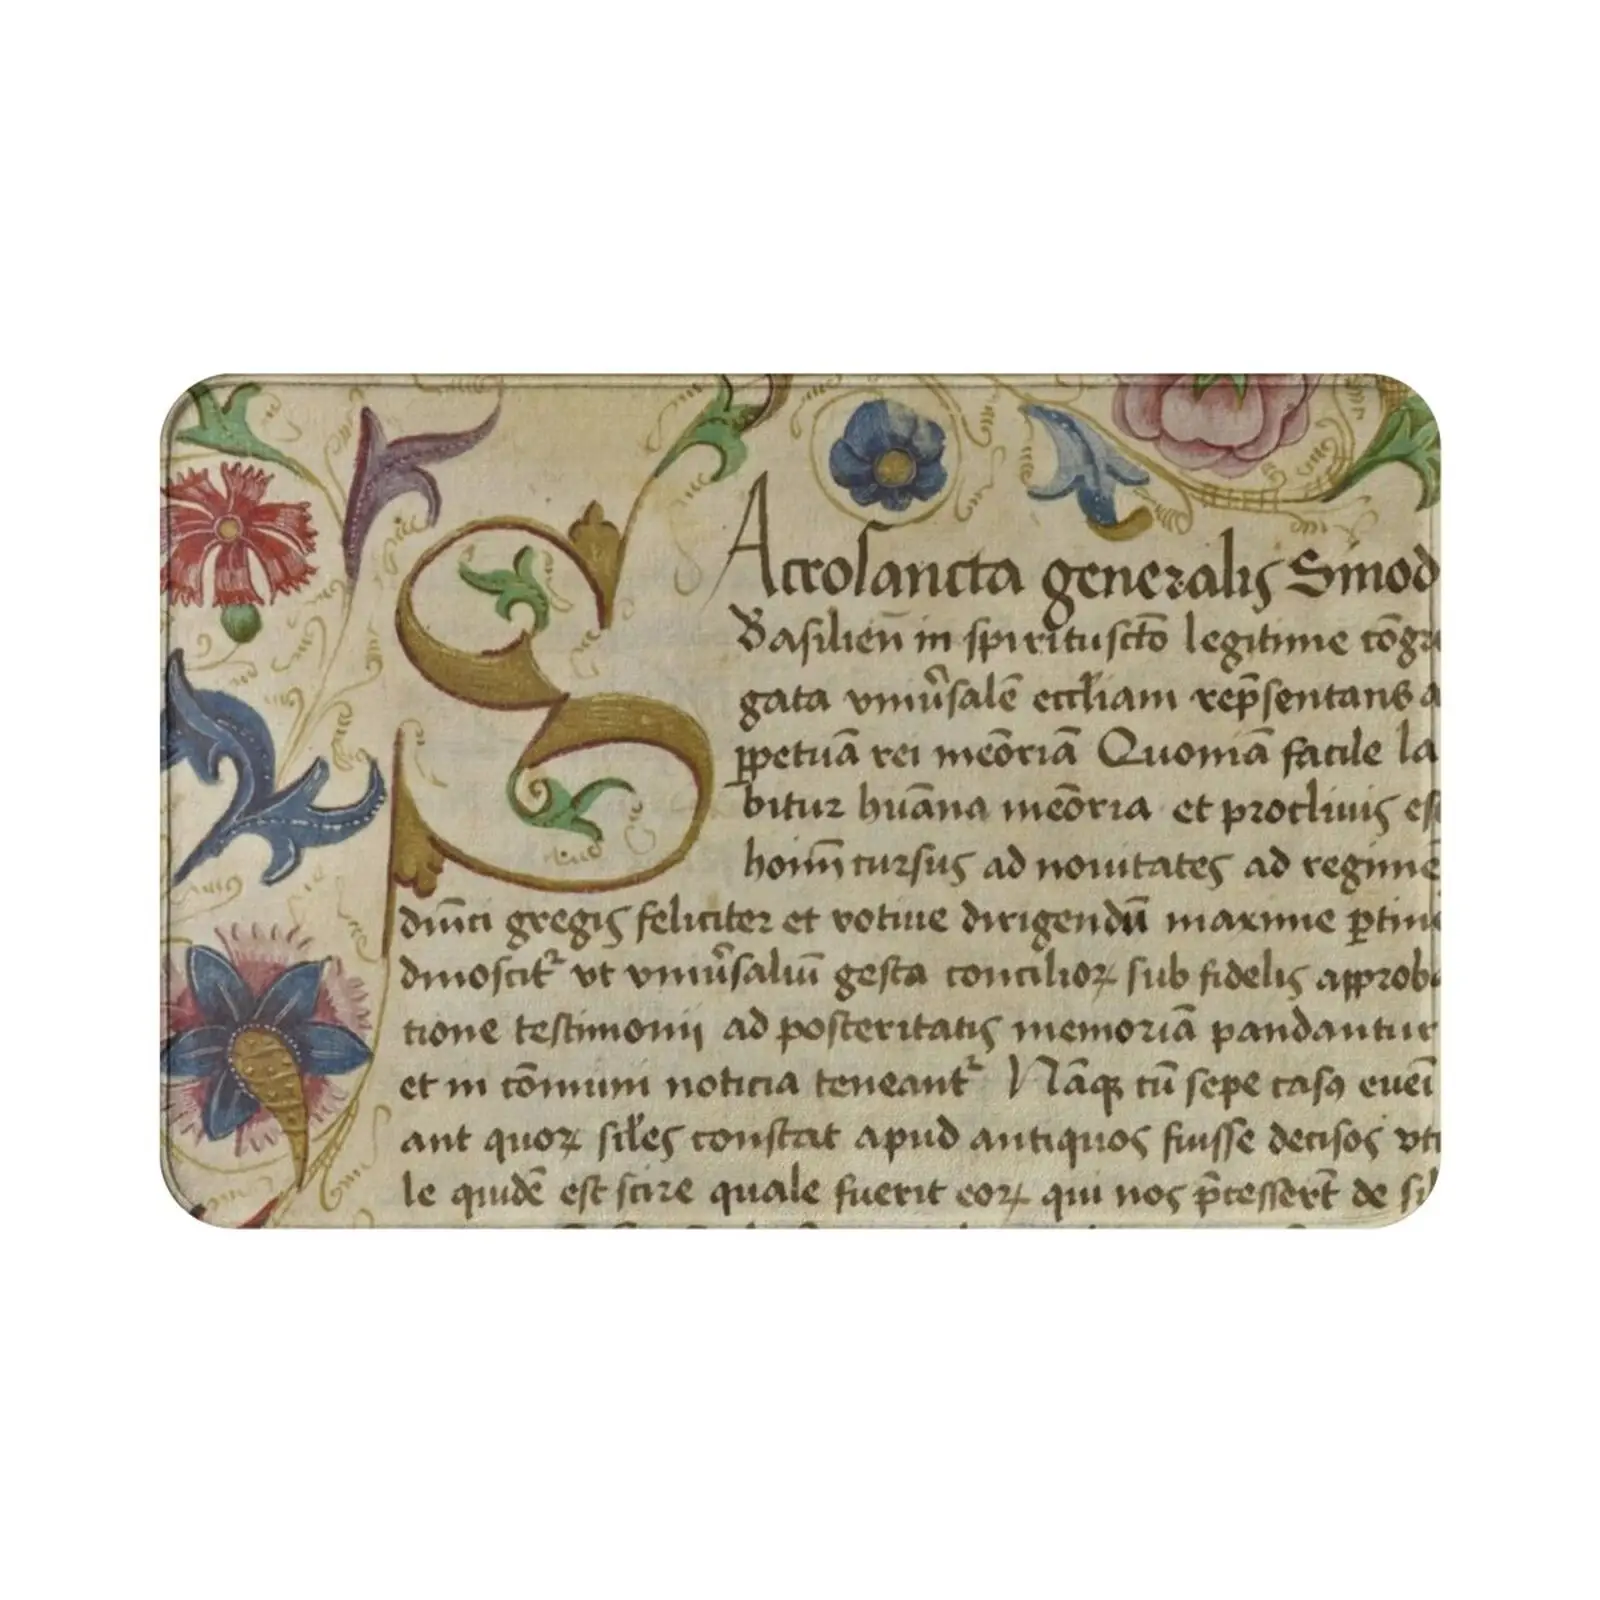 SAcrosancta generalis Sinod
Basilien̄ in spiritusctō legitime cōgre
gata vniůsalē eccl̄iam rep̄sentans a
ꝑpetuā rei meōriā Quoniā facile la
bitur huāna meōria et procliuis es
hoīm cursus ad nouitates ad regimē
dn̄ici gregis feliciter et votiue dirigendū maxime ꝑtine
dinoscit᷑ vt vniůsaliū gesta concilioꝝ sub fidelis approba
tione testimonij ad posteritatis memoriā pandantur
et in cōmunem noticia teneant᷑ Nāqꝫ cū sepe casꝯ eueī
ant quoꝝ sil̄es constat apud antiquos fuisse decisos vti
le quidē est scire quale fuerit eoꝝ qui nos p̄cessert̄ de sil